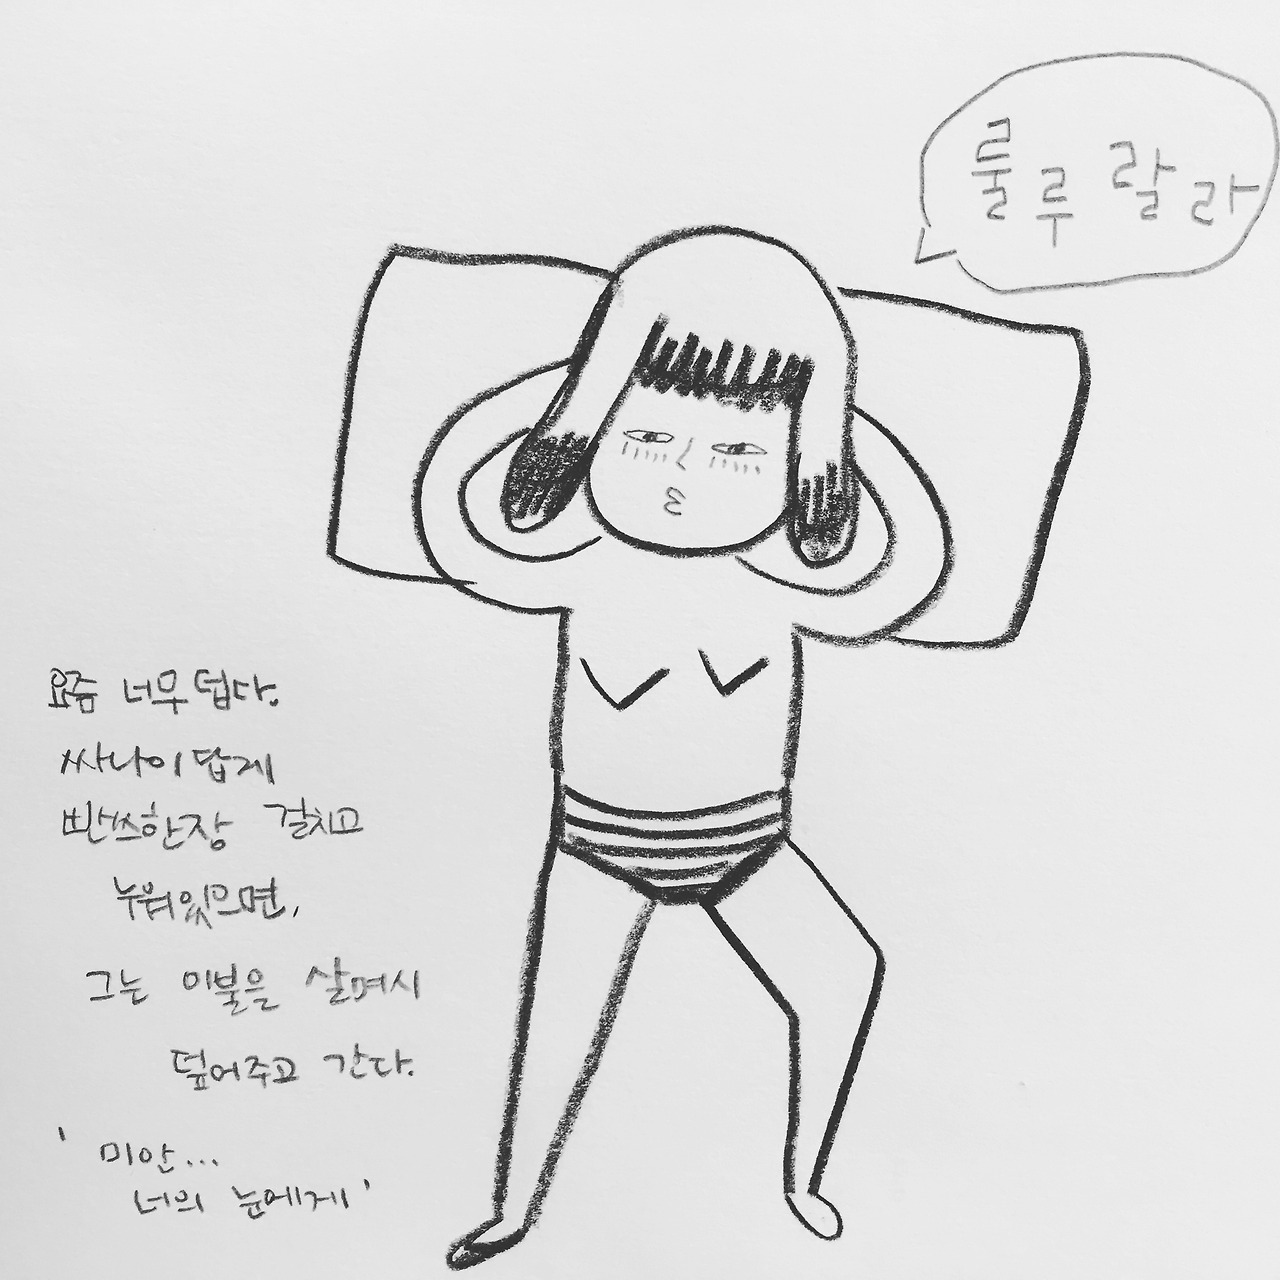 룰루랄라
요즘 너무 덥다.
싸나이답게
빤쓰한장 걸치고
누워있으면,
그는 이불을 살며시
덮어주고 간다.
' 미안...
너의 눈에게 '